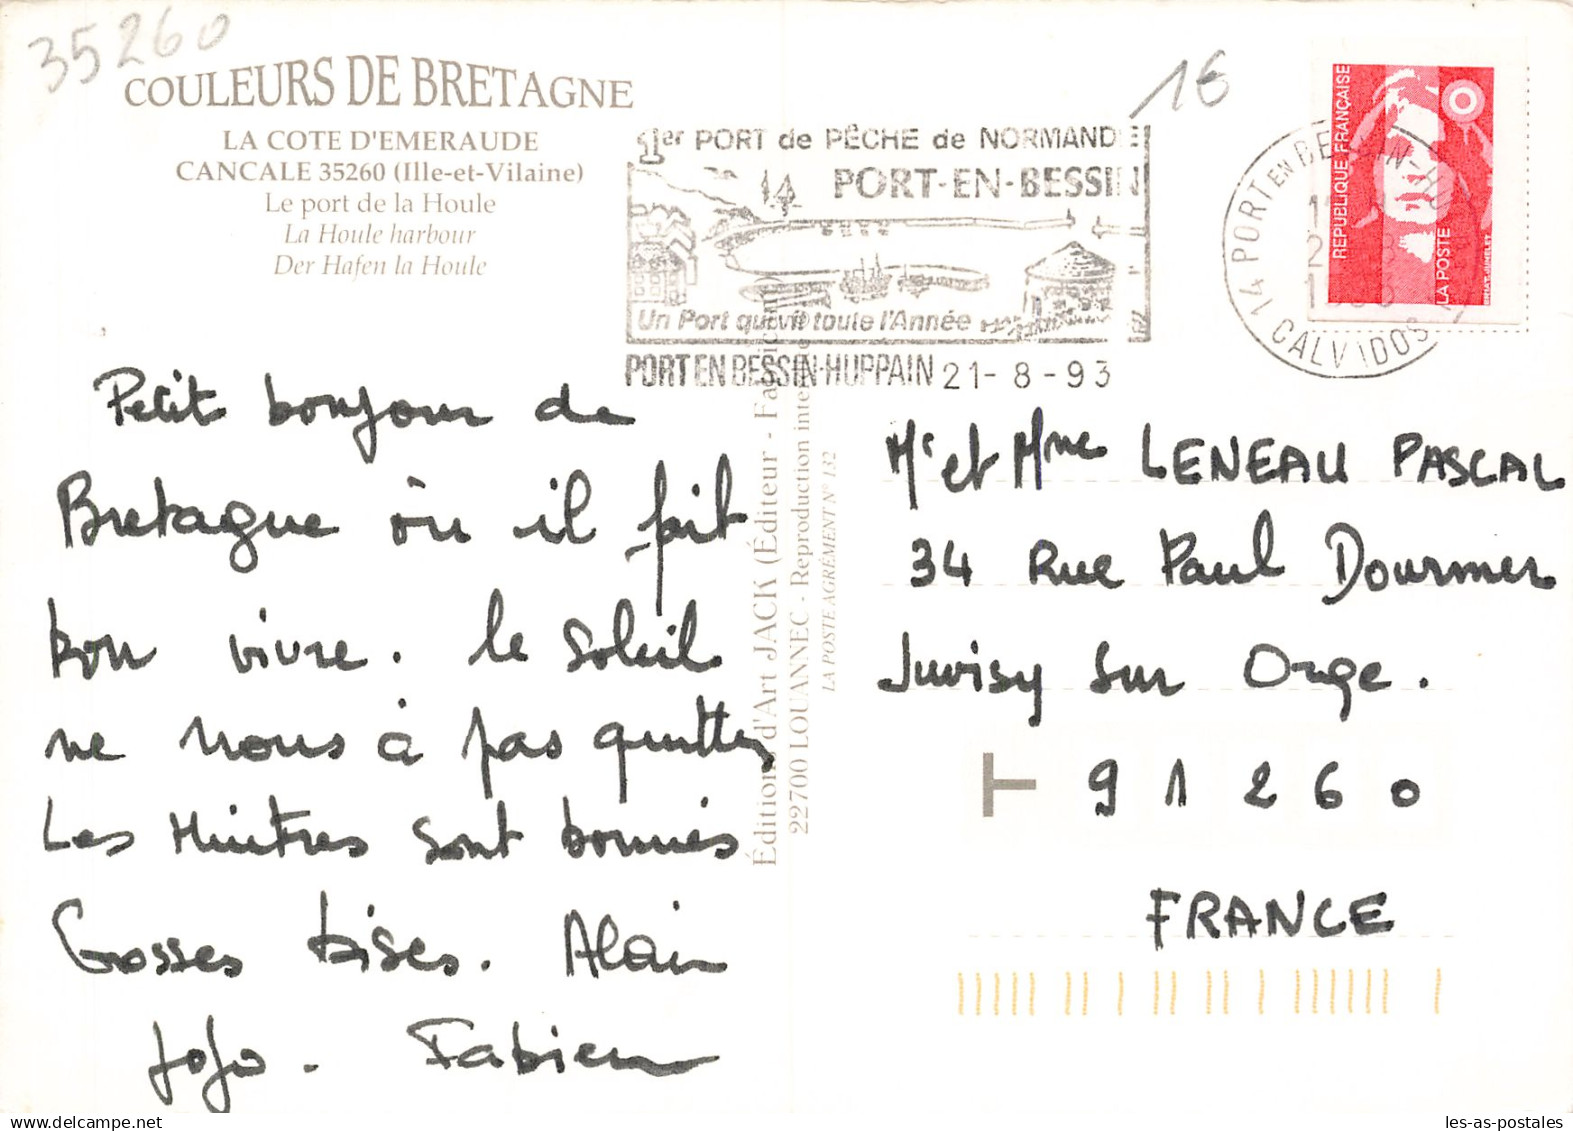 35260
COULEURS DE BRETAGNE
LA COTE D'EMERAUDE
CANCALE 35260 (Ille-et-Vilaine)
Le port de la Houle
La Houle harbour
Der Hafen la Houle
1€
1er PORT de PÊCHE de NORMANDIE
PORT-EN-BESSIN
Un Port qui vit toute l'Année
PORT EN BESSIN-HUPPAIN 21-8-93
14 PORT EN BESSIN-HU
CALVADOS
REPUBLIQUE FRANÇAISE
LA POSTE
Petit bonjour de
Bretagne où il fait
bon vivre. le soleil
ne nous à pas quittés
Les Huitres sont bonnes
Grosses bises. Alain
JoJo. Fabien
Éditions d'Art JACK (Éditeur - Fabricant)
22700 LOUANNEC - Reproduction inter
LA POSTE AGRÉMENT N° 132
Mr et Mme LENEAU PASCAL
34 Rue Paul Doumer
Juvisy sur Orge.
T 91260
FRANCE
les-as-postales